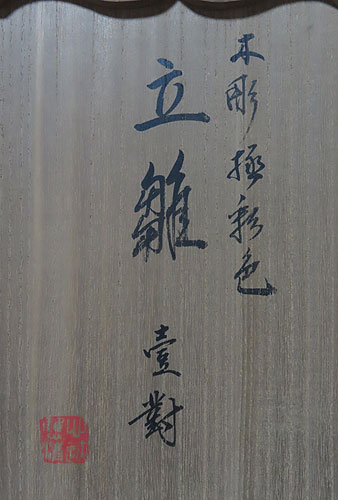 木彫極彩色
立雛
壹對